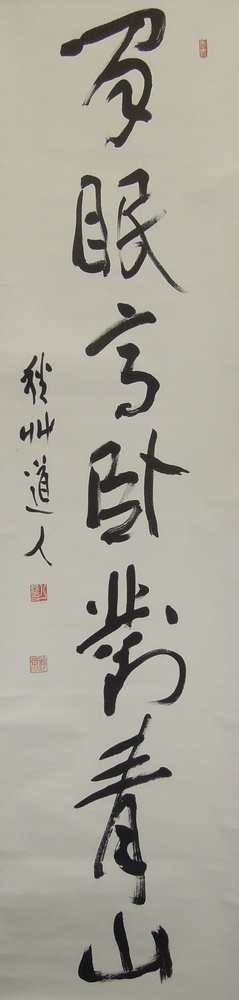 閒眠高臥對青山
秋艸道人